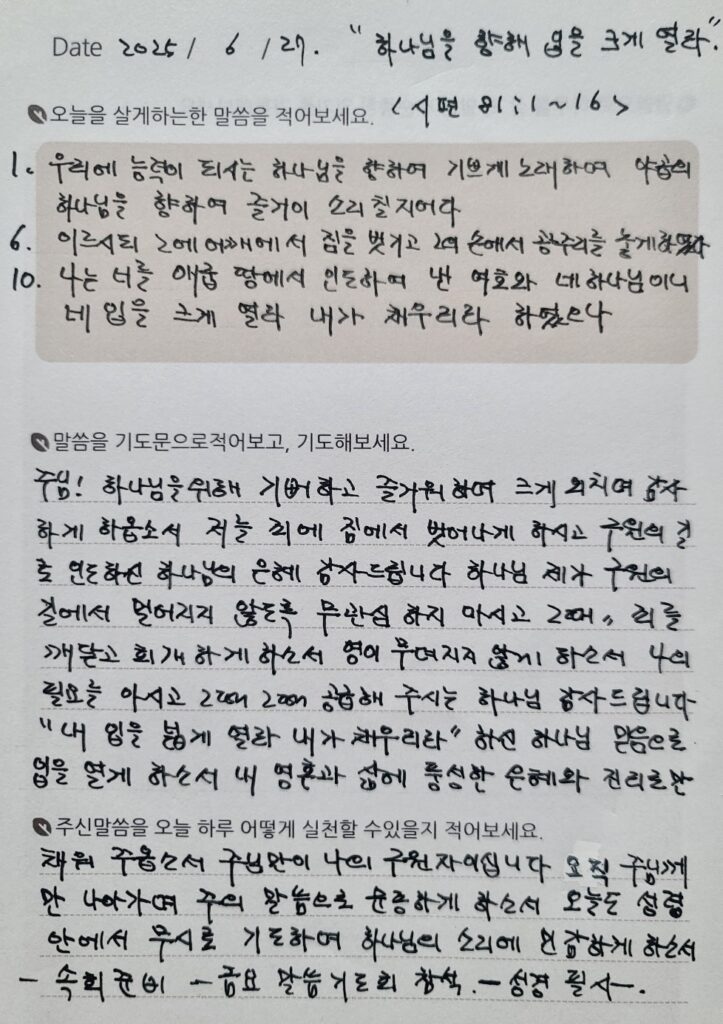 Date 2025 / 6 / 27. "하나님을 향해 입을 크게 열라".
오늘을 살게하는한 말씀을 적어보세요. <시편 81:1~16>
1. 우리에 능력이 되시는 하나님을 향하여 기쁘게 노래하며 야곱의
하나님을 향하여 즐거이 소리칠지어다
6. 이르시되 그에 어깨에서 짐을 벗기고 그의 손에서 광주리를 놓게하였다
10. 나는 너를 애굽 땅에서 인도하여 낸 여호와 네하나님이니
네 입을 크게 열라 내가 채우리라 하였으나
말씀을 기도문으로적어보고, 기도해보세요.
주님! 하나님을위해 기뻐하고 즐거워하며 크게 외치며 감사
하게 하옵소서 저를 죄에 짐에서 벗어나게 하시고 구원의 길
로 인도하신 하나님의 은혜 감사드립니다 하나님 제가 구원의
길에서 멀어지지 않도록 무관심 하지 마시고 그때,, 죄를
깨닫고 회개하게하소서 영이 무뎌지지 않게 하소서 나의
필요를 아시고 그때 그때 공급해 주시는 하나님 감사드립니다
"내 입을 넓게 열라 내가 채우리라" 하신 하나님 믿음으로
입을 열게 하소서 내 영혼과 삶에 풍성한 은혜와 진리로만
주신말씀을 오늘 하루 어떻게 실천할 수있을지 적어보세요.
채워 주옵소서 주님만이 나의 구원자이십니다 오직 주님께
만 나아가며 주의 말씀으로 순종하게 하소서 오늘도 성령
안에서 무시로 기도하며 하나님의 소리에 민감하게 하소서
- 속회준비 - 금요 말씀기도회 참석. - 성경 필사 -.